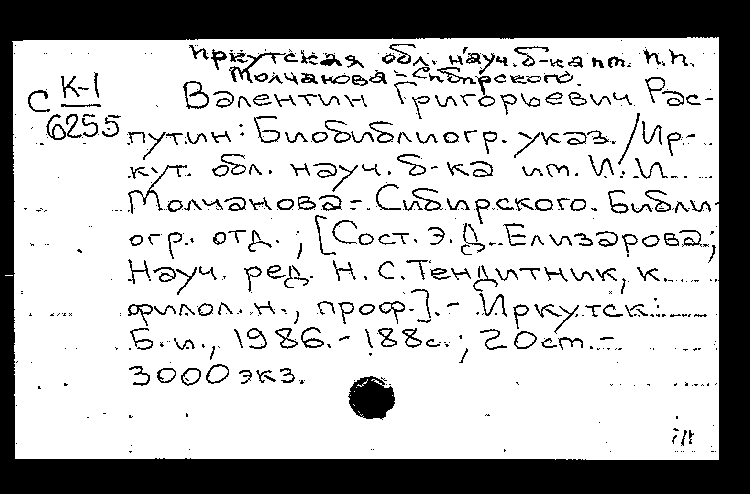 Иркутская обл. науч. б-ка им. И.И.
Молчанова-Сибирского.
С К-1
6255
Валентин Григорьевич Рас-
путин: Биобиблиогр. указ. / Ир-
кут. обл. науч. б-ка им. И. И.
Молчанова-Сибирского. Библи-
огр. отд. ; [Сост. Э. Д. Елизарова;
Науч. ред. Н. С. Тендитник, к.
филол. н., проф.]. - Иркутск:
Б. и., 1986. - 188 с. ; 20 см. -
3000 экз.